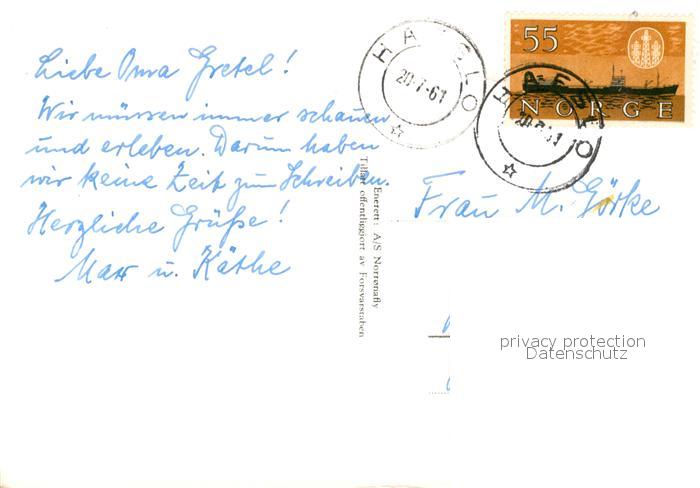 Liebe Oma Gretel!
Wir müssen immer schauen
und erleben. Darum haben
wir keine Zeit zum Schreiben.
Herzliche Grüße!
Max u. Käthe
Enerett: A/S Norrønafly
Tillatt offentliggjort av Forsvarstaben
20-7-61
55
NORGE
Frau M. Görke
privacy protection
Datenschutz